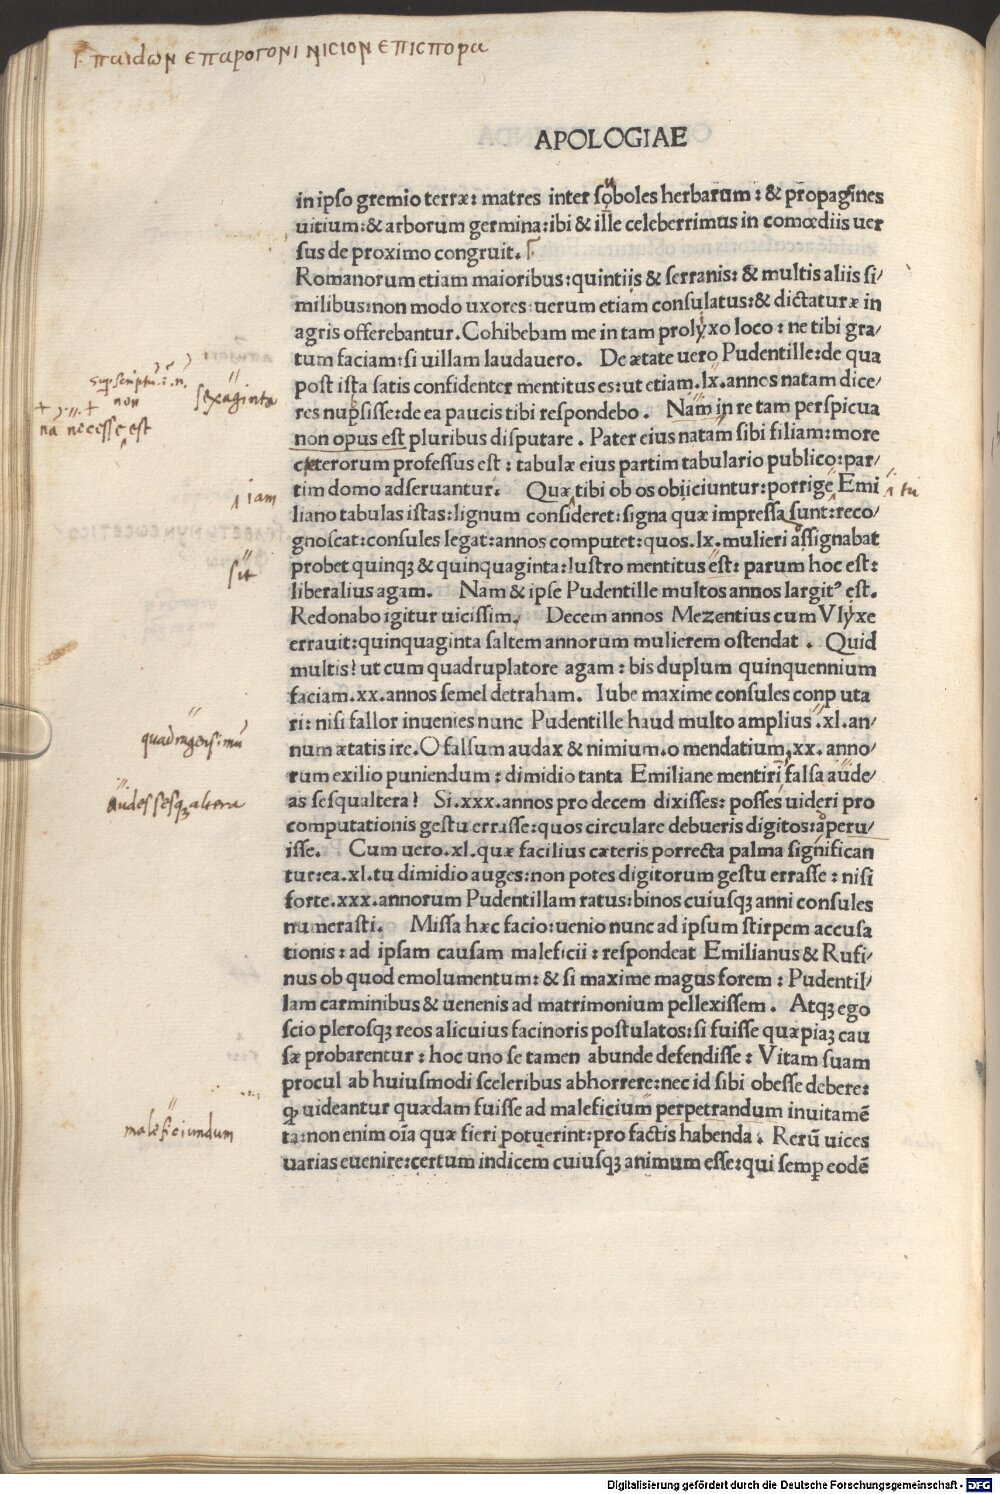 Γ παιδων επαρογονι νισιον επιςπορα
APOLOGIAE
in ipso gremio terræ: matres inter soboles herbarum: & ꝓpagines
uitium: & arborum germina: ibi & ille celeberrimus in comœdiis uer
sus de proximo congruit.
Romanorum etiam maioribus: quintiis & serranis: & multis aliis si/
milibus: non modo uxores uerum etiam consulatus: & dictaturæ in
agris offerebantur. Cohibebam me in tam prolyxo loco: ne tibi gra/
tum faciam: si uillam laudauero. De ætate uero Pudentille: de qua
post ista satis confidenter mentitus es: ut etiam .lx. annos natam dice/
sexaginta
non
res nupsisse: de ea paucis tibi respondebo. Nam in re tam perspicua
na necesse est
non opus est pluribus disputare. Pater eius natam sibi filiam: more
cæterorum professus est: tabulæ eius partim tabulario publico: par/
tim domo adseruantur. Quæ tibi ob os obiiciuntur: porrige Emi
iam
tu
liano tabulas istas: lignum consideret: signa quæ impressa sunt: reco/
gnoscat: consules legat: annos computet: quos .lx. mulieri assignabat
probet quinqꝫ & quinquaginta: lustro mentitus est: parum hoc est:
sit
liberalius agam. Nam & ipse Pudentille multos annos largitꝰ est.
Redonabo igitur uicissim. Decem annos Mezentius cum Vlyxe
errauit: quinquaginta saltem annorum mulierem ostendat. Quid
multis? ut cum quadruplatore agam: bis duplum quinquennium
faciam .xx. annos semel detraham. Iube maxime consules conp uta
ri: nisi fallor inuenies nunc Pudentille haud multo amplius .xl. an/
quadragensimū
num ætatis ire. O falsum audax & nimium. o mendatium .xx. anno/
rum exilio puniendum: dimidio tanta Emiliane mentiri falsa aude/
audes sesqꝫ altera
as sesqualtera? Si .xxx. annos pro decem dixisses: posses uideri pro
computationis gestu errasse: quos circulare debueris digitos: aperu/
isse. Cum uero .xl. quæ facilius cæteris porrecta palma significan
tur: ea .xl. tu dimidio auges: non potes digitorum gestu errasse: nisi
forte .xxx. annorum Pudentillam ratus: binos cuiusqꝫ anni consules
numerasti. Missa hæc facio: uenio nunc ad ipsum stirpem accusa
tionis: ad ipsam causam maleficii: respondeat Emilianus & Rufi/
nus ob quod emolumentum: & si maxime magus forem: Pudentil/
lam carminibus & uenenis ad matrimonium pellexissem. Atqꝫ ego
scio plerosqꝫ reos alicuius facinoris postulatos: si fuisse quæpiaꝫ cau
sæ probarentur: hoc uno se tamen abunde defendisse: Vitam suam
procul ab huiusmodi sceleribus abhorrere: nec id sibi obesse debere:
ꝙ uideantur quædam fuisse ad maleficium perpetrandum inuitamē
maleficiundum
ta: non enim oīa quæ fieri potuerint: pro factis habenda. Rerū uices
uarias euenire: certum indicem cuiusqꝫ animum esse: qui semꝑ eodē
Digitalisierung gefördert durch die Deutsche Forschungsgemeinschaft - DFG